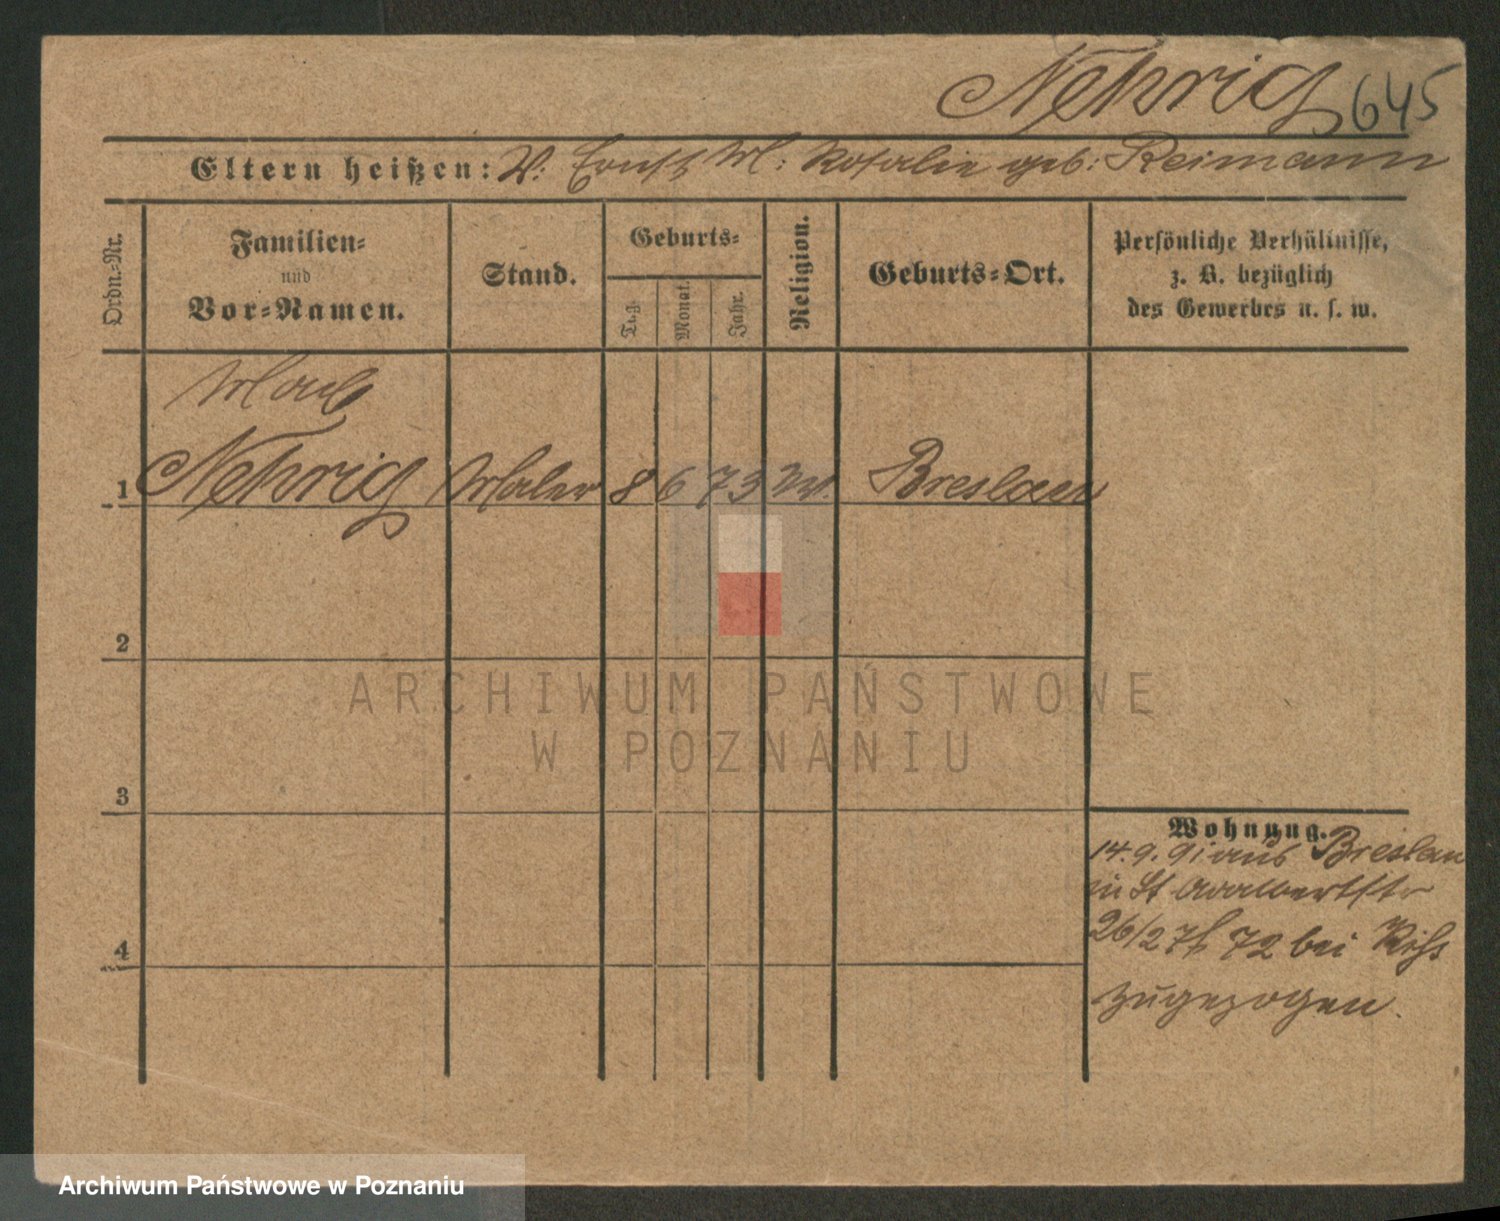 Nehrig 645
Eltern heißen: V: Ernst M: Rosalie geb: Reimann
Ordn.-Nr.
Familien-
und
Vor-Namen.
Stand.
Geburts-
Tag.
Monat.
Jahr.
Religion.
Geburts-Ort.
Persönliche Verhältnisse,
z. B. bezüglich
des Gewerbes u. s. w.
1 Nehrig Maler 8 6 73 Breslau
2
3
4
Wohnung.
14. 9. 91 aus Breslau
in St Adalbertstr
26/27 72 bei
zugezogen.
ARCHIWUM PAŃSTWOWE
W POZNANIU
Archiwum Państwowe w Poznaniu